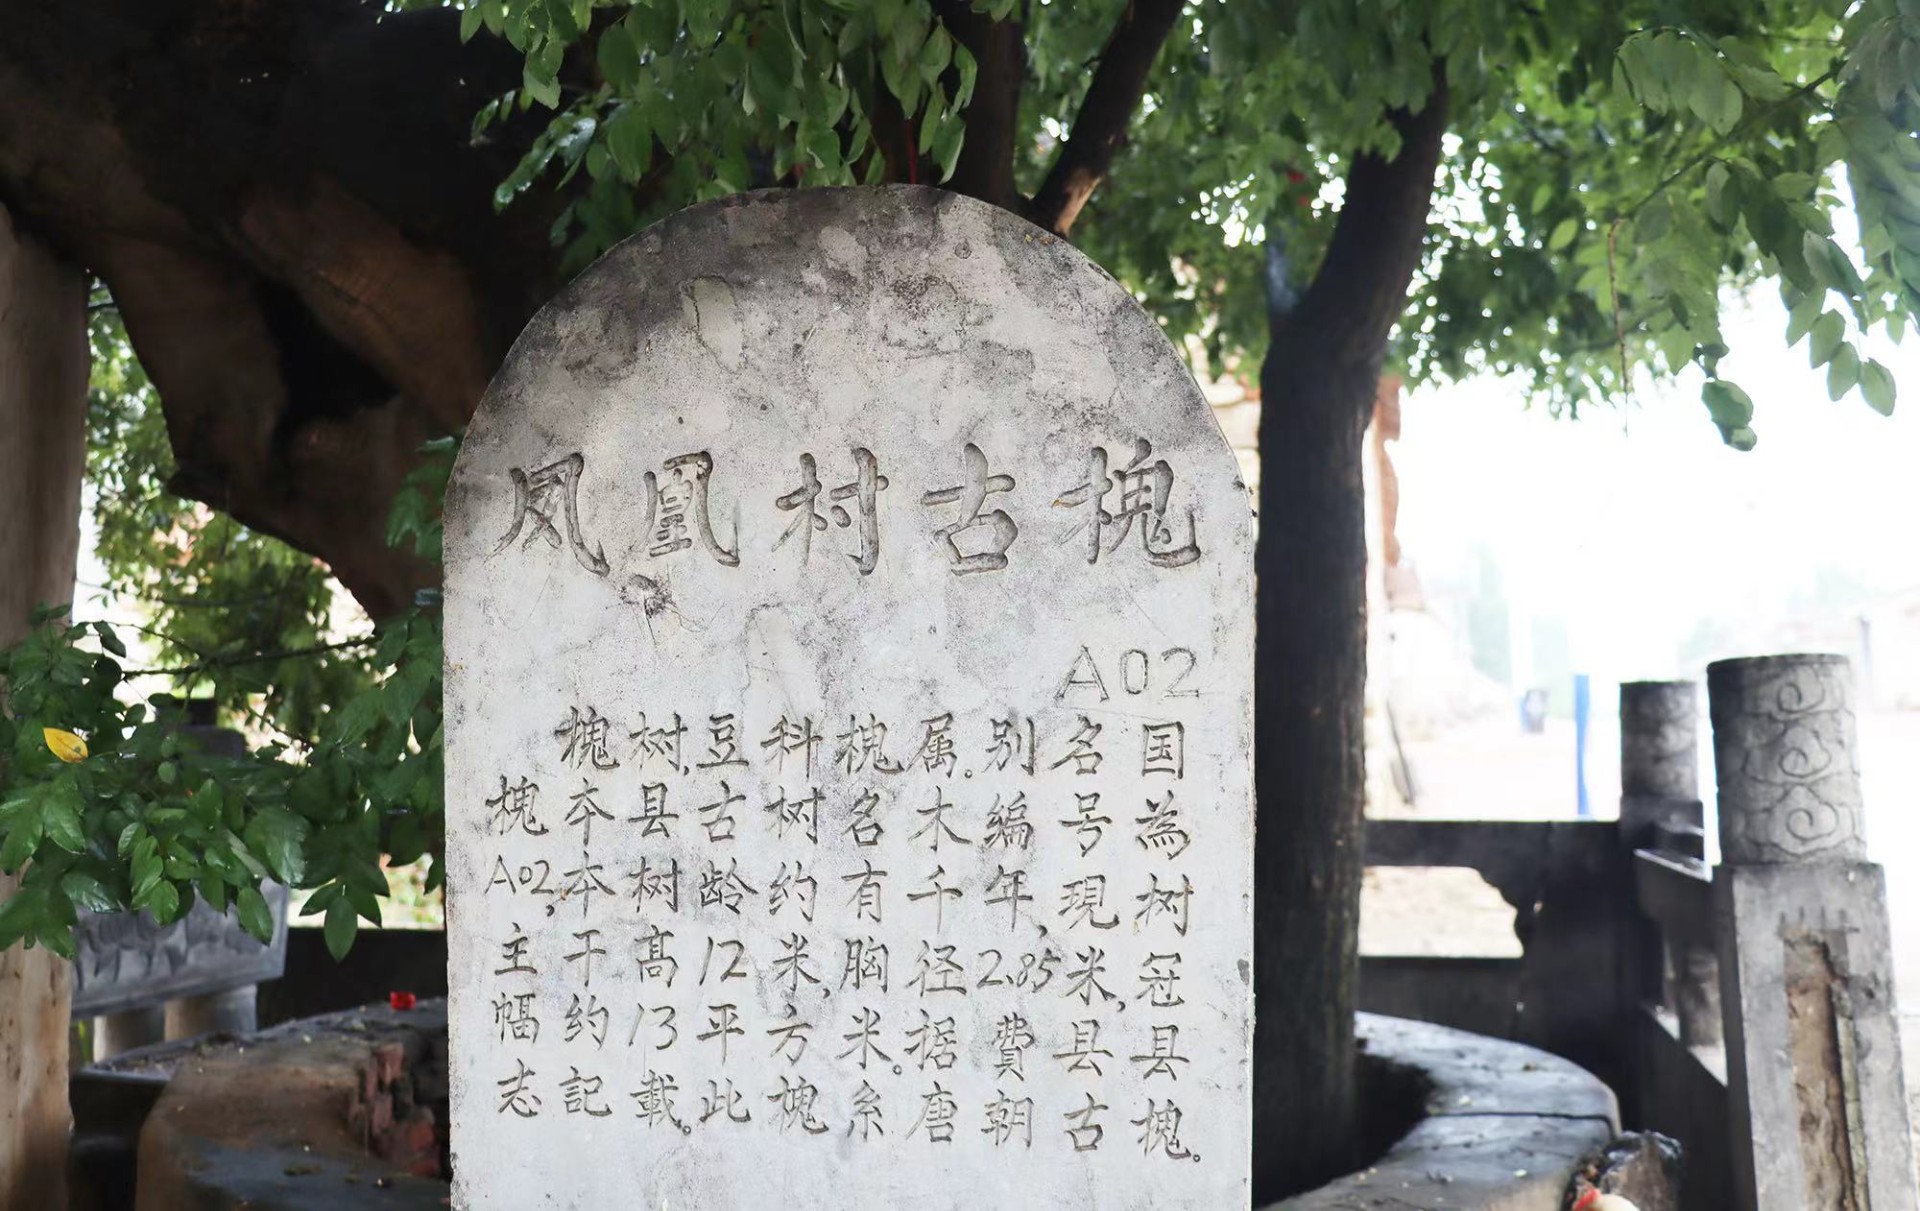 凤凰村古槐
A02
槐树,豆科槐属。别名国
槐本县古树名木編号為
A02,本树龄约有千年,現树
主干高12米,胸径2.85米,冠
幅约13平方米。据費县县
志記載。此槐糸唐朝古槐。